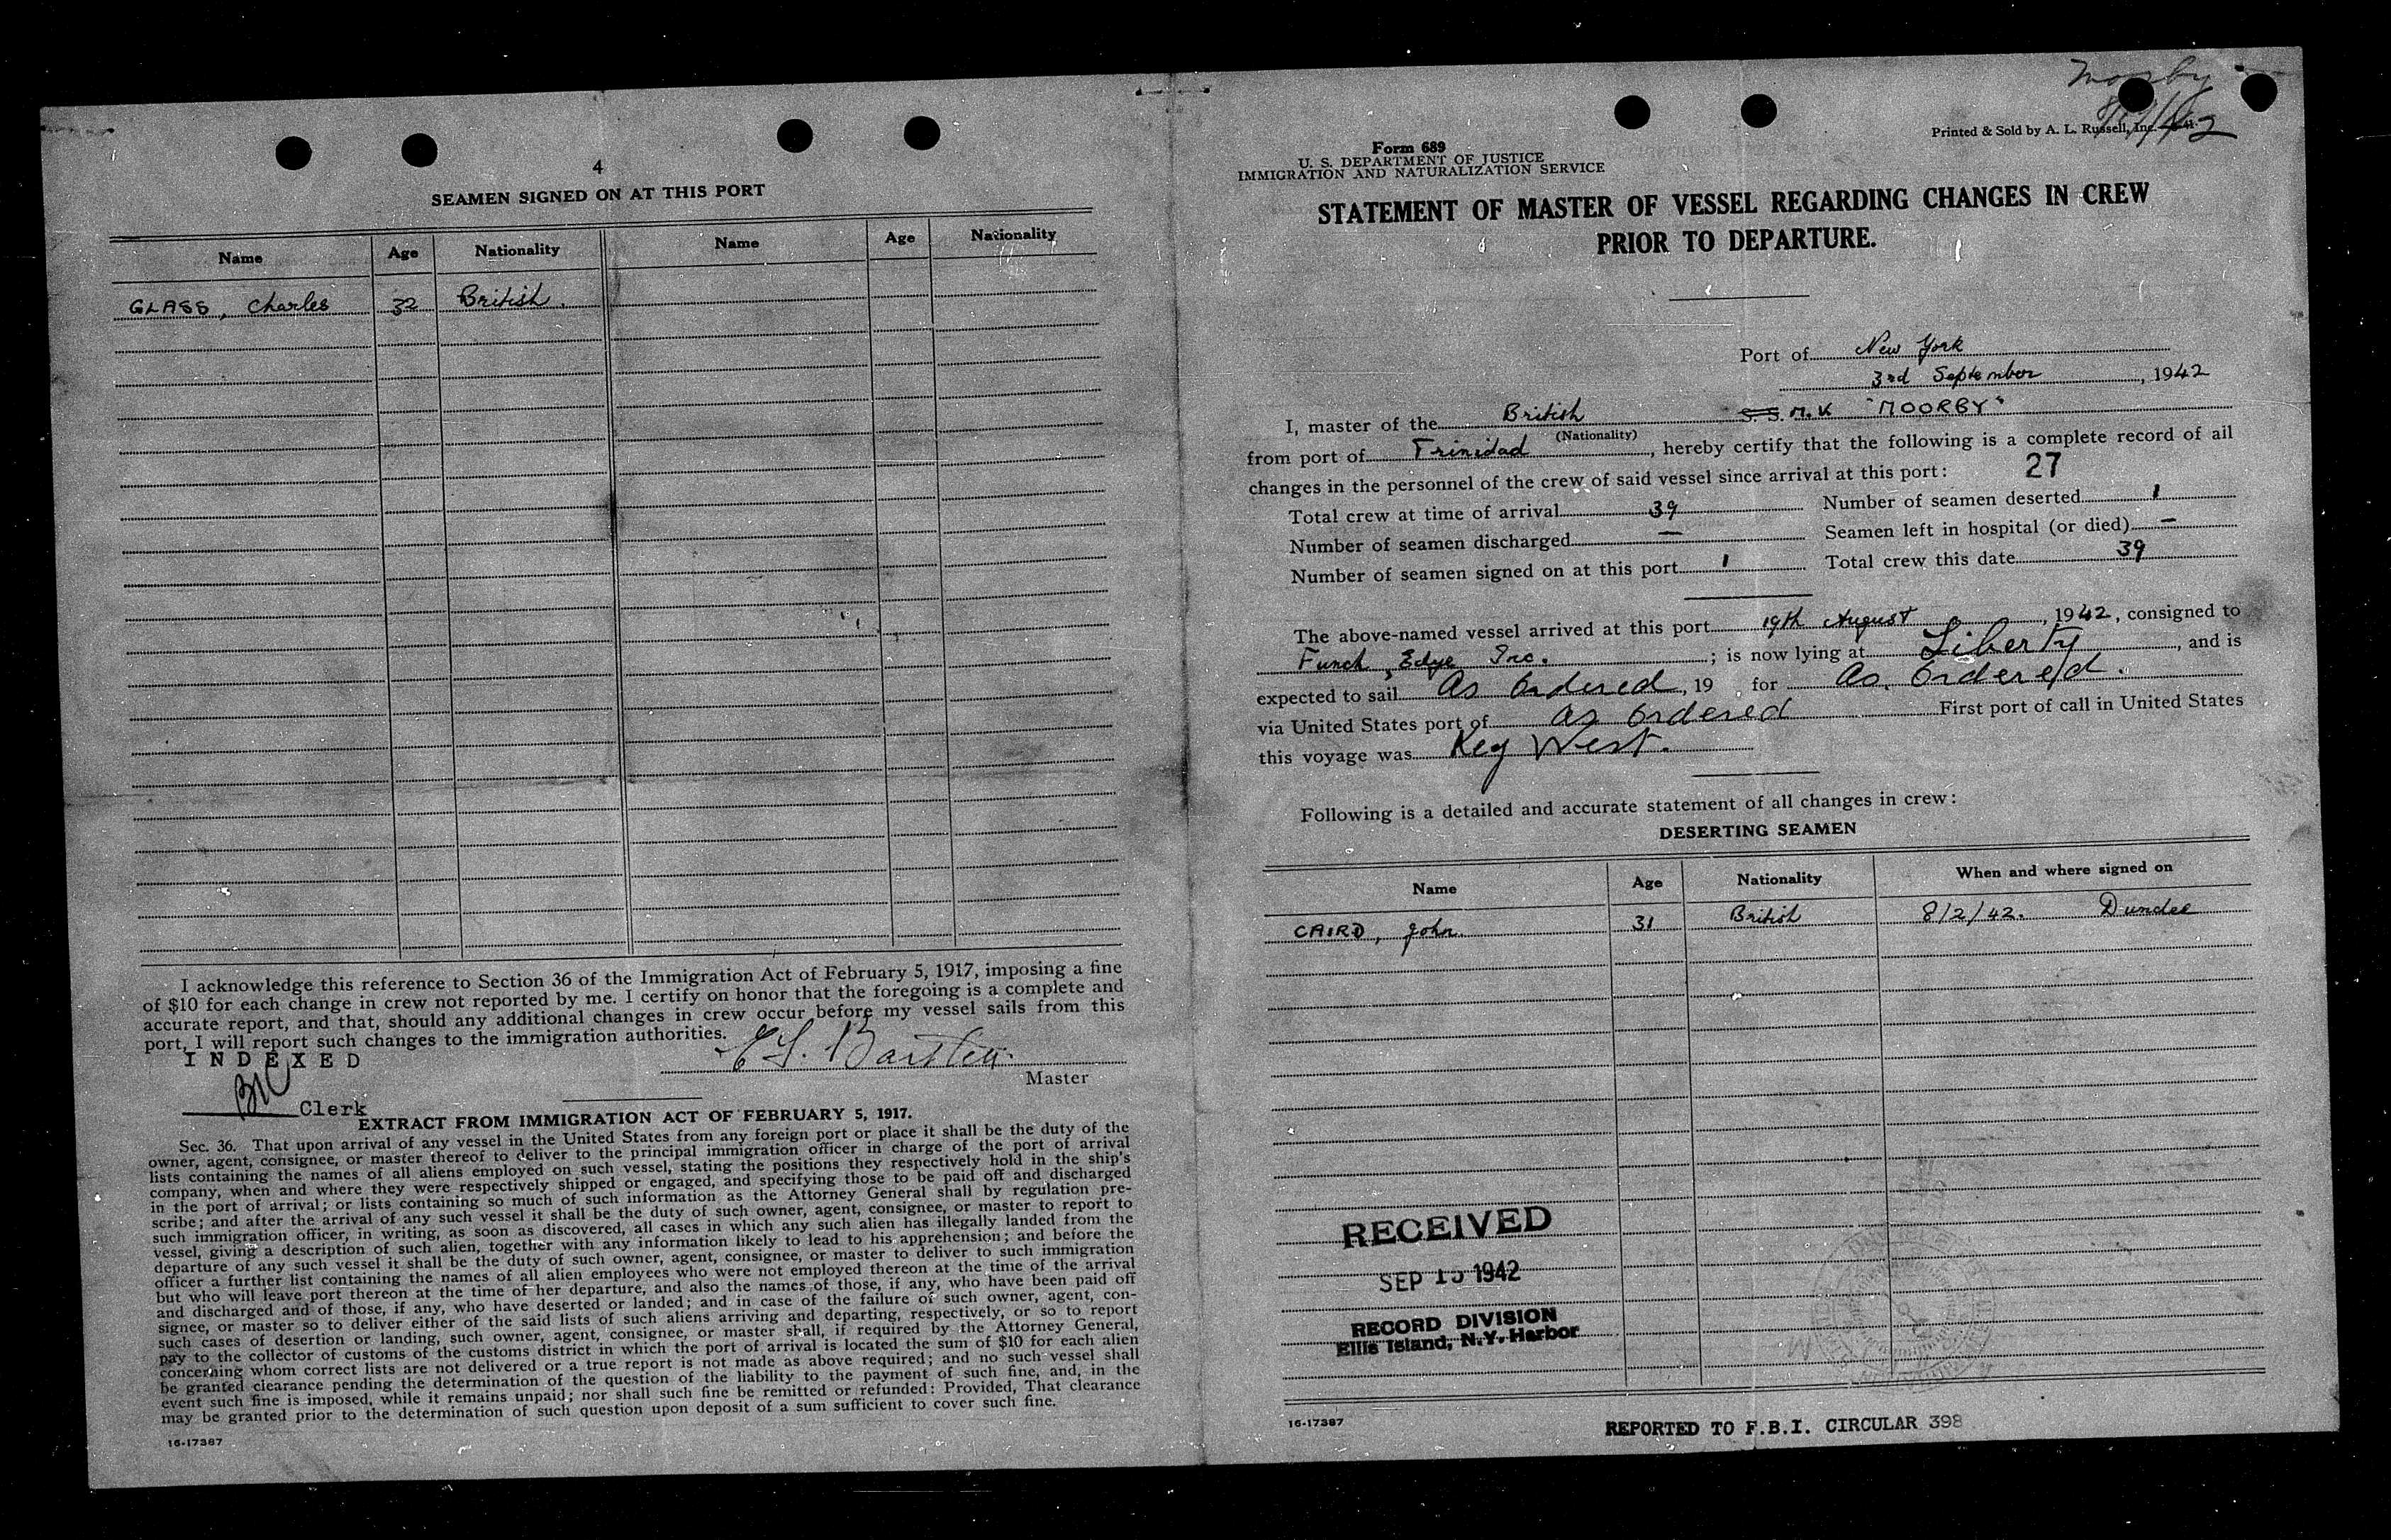 4
SEAMEN SIGNED ON AT THIS PORT
Name Age Nationality Name Age Nationality
GLASS, Charles 32 British.
I acknowledge this reference to Section 36 of the Immigration Act of February 5, 1917, imposing a fine
of $10 for each change in crew not reported by me. I certify on honor that the foregoing is a complete and
accurate report, and that, should any additional changes in crew occur before my vessel sails from this
port, I will report such changes to the immigration authorities.
INDEXED
Master
Clerk
EXTRACT FROM IMMIGRATION ACT OF FEBRUARY 5, 1917.
Sec. 36. That upon arrival of any vessel in the United States from any foreign port or place it shall be the duty of the
owner, agent, consignee, or master thereof to deliver to the principal immigration officer in charge of the port of arrival
lists containing the names of all aliens employed on such vessel, stating the positions they respectively hold in the ship's
company, when and where they were respectively shipped or engaged, and specifying those to be paid off and discharged
in the port of arrival; or lists containing so much of such information as the Attorney General shall by regulation pre-
scribe; and after the arrival of any such vessel it shall be the duty of such owner, agent, consignee, or master to report to
such immigration officer, in writing, as soon as discovered, all cases in which any such alien has illegally landed from the
vessel, giving a description of such alien, together with any information likely to lead to his apprehension; and before the
departure of any such vessel it shall be the duty of such owner, agent, consignee, or master to deliver to such immigration
officer a further list containing the names of all alien employees who were not employed thereon at the time of the arrival
but who will leave port thereon at the time of her departure, and also the names of those, if any, who have been paid off
and discharged and of those, if any, who have deserted or landed; and in case of the failure of such owner, agent, con-
signee, or master so to deliver either of the said lists of such aliens arriving and departing, respectively, or so to report
such cases of desertion or landing, such owner, agent, consignee, or master shall, if required by the Attorney General,
pay to the collector of customs of the customs district in which the port of arrival is located the sum of $10 for each alien
concerning whom correct lists are not delivered or a true report is not made as above required; and no such vessel shall
be granted clearance pending the determination of the question of the liability to the payment of such fine, and, in the
event such fine is imposed, while it remains unpaid; nor shall such fine be remitted or refunded: Provided, That clearance
may be granted prior to the determination of such question upon deposit of a sum sufficient to cover such fine.
16-17387
Moorby
Printed & Sold by A. L. Russell, Inc.
Form 689
U. S. DEPARTMENT OF JUSTICE
IMMIGRATION AND NATURALIZATION SERVICE
STATEMENT OF MASTER OF VESSEL REGARDING CHANGES IN CREW
PRIOR TO DEPARTURE.
Port of New York
3rd September, 1942
I, master of the British S.S. M.V "MOORBY"
(Nationality)
from port of Trinidad, hereby certify that the following is a complete record of all
changes in the personnel of the crew of said vessel since arrival at this port: 27
Total crew at time of arrival 39 Number of seamen deserted 1
Number of seamen discharged — Seamen left in hospital (or died) —
Number of seamen signed on at this port 1 Total crew this date 39
The above-named vessel arrived at this port 19th August, 1942, consigned to
Funch, Edye Inc.; is now lying at Liberty, and is
expected to sail As Ordered, 19 , for As Ordered.
via United States port of As Ordered First port of call in United States
this voyage was Key West.
Following is a detailed and accurate statement of all changes in crew:
DESERTING SEAMEN
Name Age Nationality When and where signed on
CAIRD, John 31 British 8/2/42. Dundee
RECEIVED
SEP 15 1942
RECORD DIVISION
Ellis Island, N.Y. Harbor
16-17387
REPORTED TO F.B.I. CIRCULAR 398